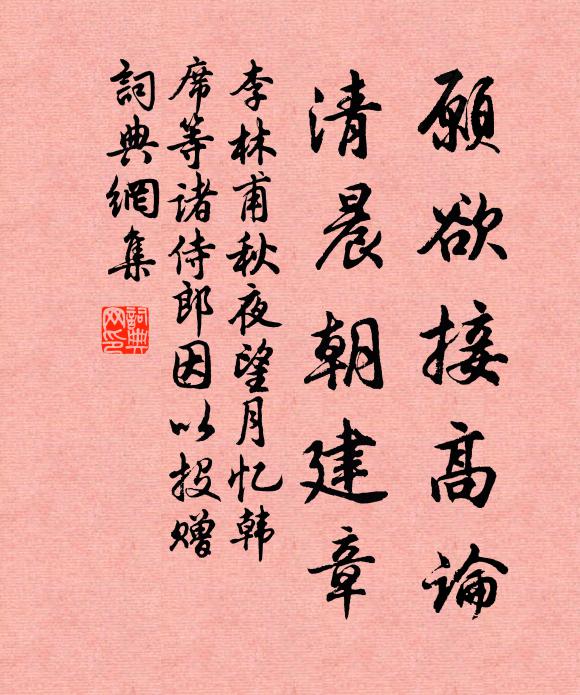 願欲接高論
清晨朝建章
李林甫秋夜望月忆韩
席等诸侍郎因以投赠
詞典網集
詞典
网印